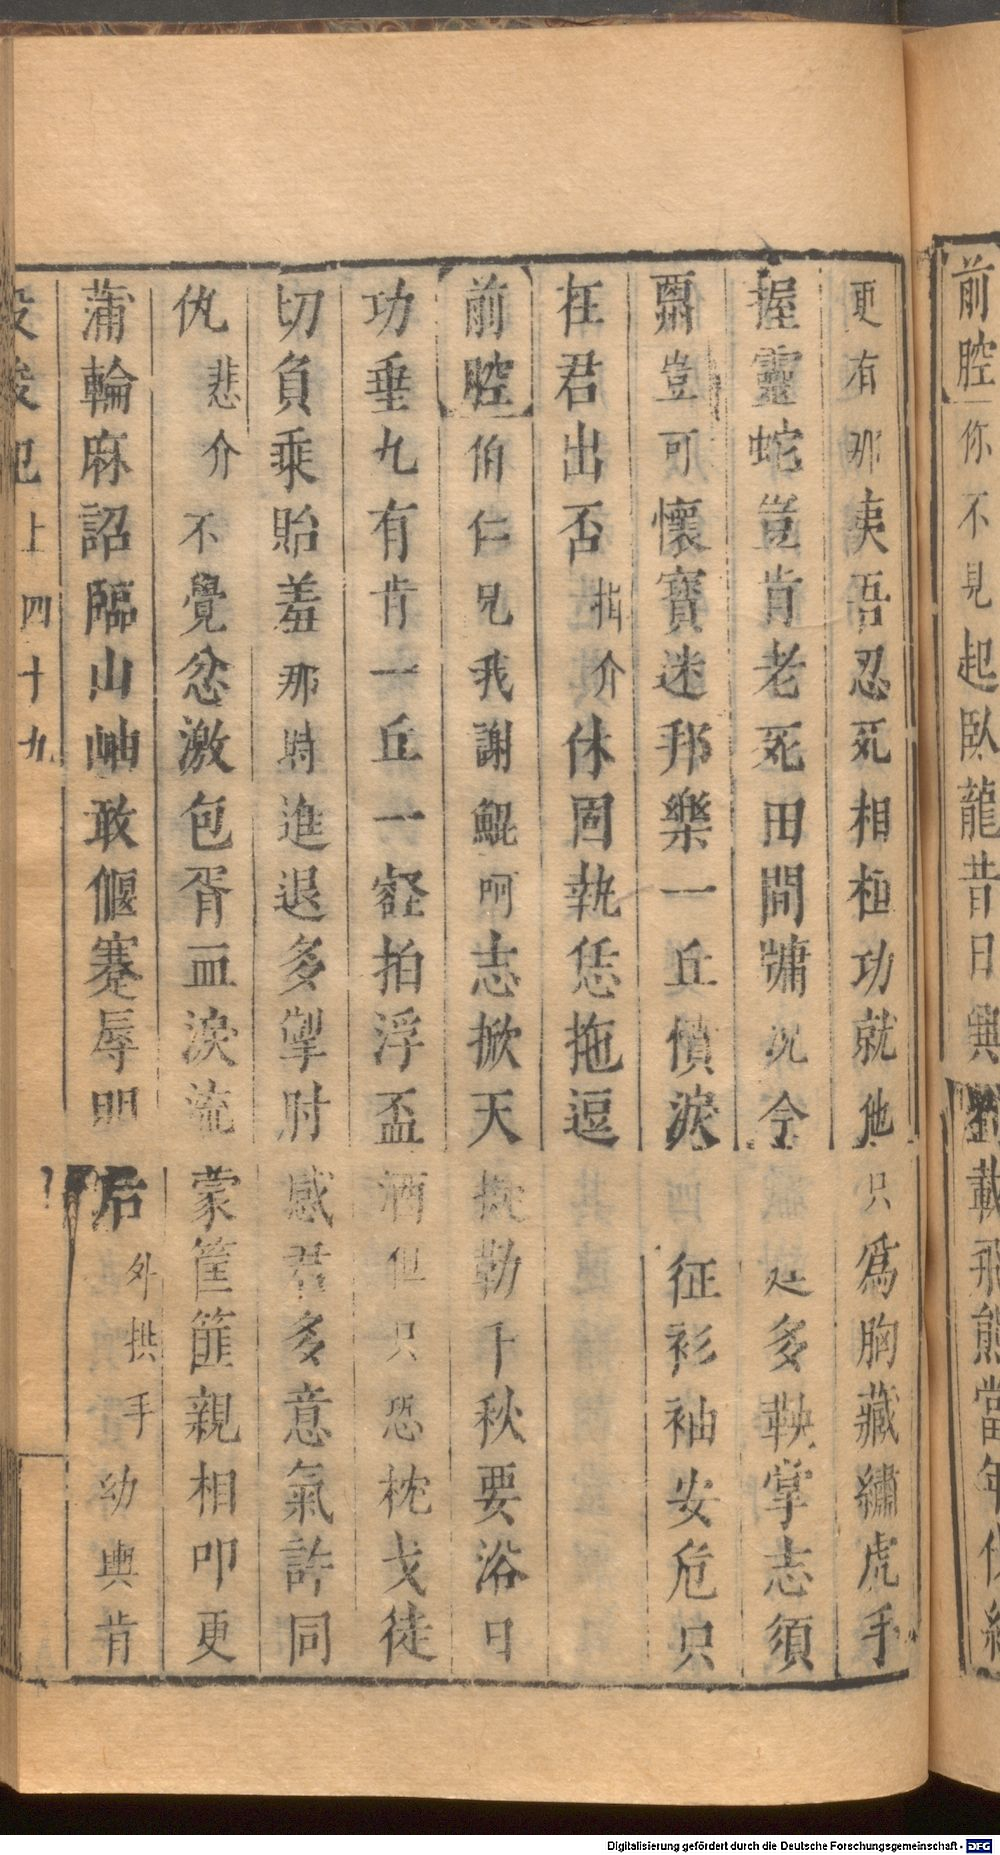 前腔你不見起臥龍昔日興劉載飛熊當年
更有那夷吾忍死相桓功就他只爲胸藏繡虎手
握靈蛇豈肯老死田間牖況今是多鞅掌志須
肅豈可懷寶迷邦樂一丘憤淚征衫袖安危只
在君出否揖介休固執恁拖逗
前腔伯仁兄我謝鯤呵志掀天擬勒千秋要浴日
功垂九有肯一丘一壑拍浮盃酒但只恐枕戈徒
切負乘貽羞那時進退多掣肘感君多意氣許同
仇悲介不覺忿激包胥血淚流蒙筐篚親相叩更
蒲輪麻詔臨山岫敢偃蹇辱明后外拱手幼輿肯
犯上四十九
Digitalisierung gefördert durch die Deutsche Forschungsgemeinschaft - DFG